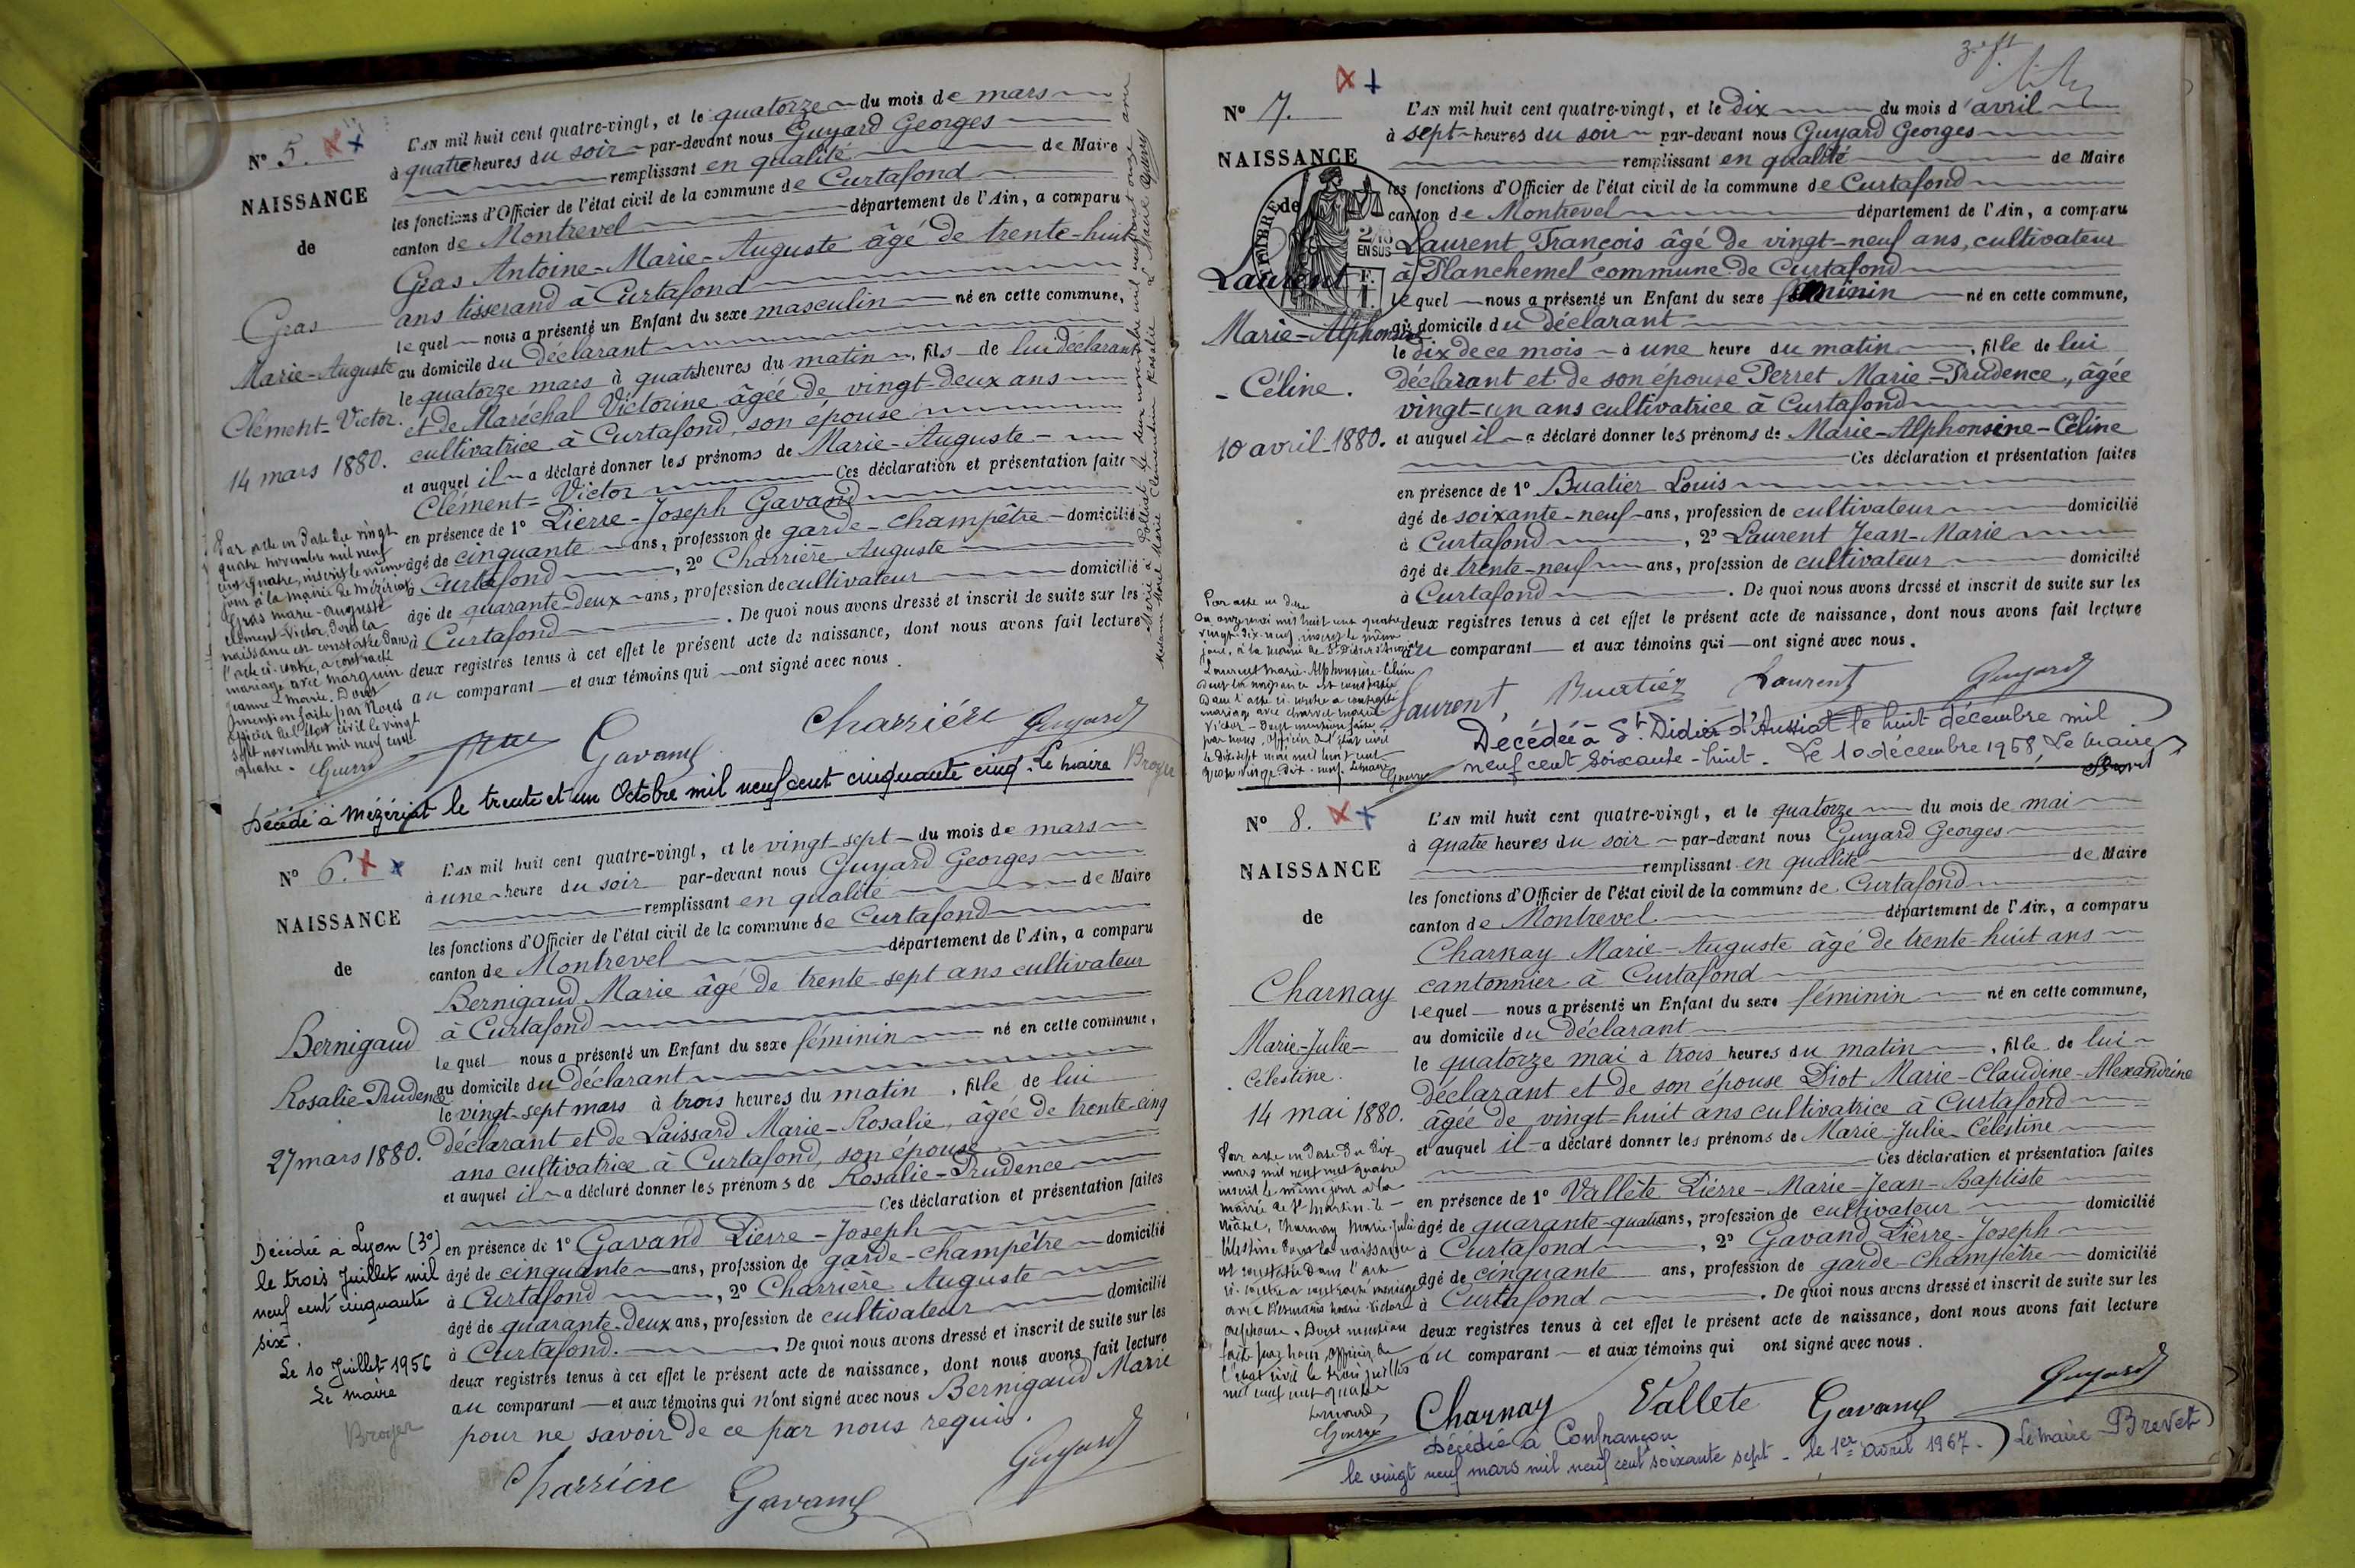 N° 5.
NAISSANCE
de
Gras
Marie-Auguste
Clément-Victor.
14 mars 1880.
L'AN mil huit cent quatre-vingt, et le quatorze du mois de mars
à quatre heures du soir par-devant nous Guyard Georges
remplissant en qualité de Maire
les fonctions d'Officier de l'état civil de la commune de Curtafond
canton de Montrevel département de l'Ain, a comparu
Gras Antoine-Marie-Auguste âgé de trente-huit
ans tisserand à Curtafond
lequel nous a présenté un Enfant du sexe masculin né en cette commune,
au domicile du déclarant
le quatorze mars à quatre heures du matin, fils de lui déclarant
et de Maréchal Victorine âgée de vingt-deux ans
cultivatrice à Curtafond, son épouse
et auquel il a déclaré donner les prénoms de Marie-Auguste-
Clément-Victor Ces déclaration et présentation faites
en présence de 1° Pierre-Joseph Gavand
âgé de cinquante ans, profession de garde-champêtre domicilié
à Curtafond, 2° Charrière Auguste
âgé de quarante-deux ans, profession de cultivateur domicilié
à Curtafond. De quoi nous avons dressé et inscrit de suite sur les
deux registres tenus à cet effet le présent acte de naissance, dont nous avons fait lecture
au comparant et aux témoins qui ont signé avec nous.
Par acte en date du vingt
quatre novembre mil neuf
cent quatre, inscrit le même
jour à la mairie de Mézériat
Gras Marie-Auguste
Clément-Victor, dont la
naissance est constatée dans
l'acte ci-contre, a contracté
mariage avec Marguin
Jeanne-Marie. Dont
mention faite par Nous
officier de l'état civil le vingt
sept novembre mil neuf cent
quatre.
Gras Gavand Charrière Guyard
Décédé à Mézériat le trente et un Octobre mil neuf cent cinquante cinq. Le maire Broyer
N° 6.
NAISSANCE
de
Bernigaud
Rosalie-Prudence
27 mars 1880.
L'AN mil huit cent quatre-vingt, et le vingt-sept du mois de mars
à une heure du soir par-devant nous Guyard Georges
remplissant en qualité de Maire
les fonctions d'Officier de l'état civil de la commune de Curtafond
canton de Montrevel département de l'Ain, a comparu
Bernigaud Marie âgé de trente-sept ans cultivateur
à Curtafond
lequel nous a présenté un Enfant du sexe féminin né en cette commune,
au domicile du déclarant
le vingt-sept mars à trois heures du matin, fille de lui
déclarant et de Laissard Marie-Rosalie, âgée de trente-cinq
ans cultivatrice à Curtafond, son épouse
et auquel il a déclaré donner les prénoms de Rosalie-Prudence
Ces déclaration et présentation faites
en présence de 1° Gavand Pierre-Joseph
âgé de cinquante ans, profession de garde-champêtre domicilié
à Curtafond, 2° Charrière Auguste
âgé de quarante-deux ans, profession de cultivateur domicilié
à Curtafond. De quoi nous avons dressé et inscrit de suite sur les
deux registres tenus à cet effet le présent acte de naissance, dont nous avons fait lecture
au comparant et aux témoins qui n'ont signé avec nous Bernigaud Marie
pour ne savoir de ce par nous requis.
Décédée à Lyon (3e)
le trois Juillet mil
neuf cent cinquante
six.
Le 10 Juillet 1956
Le maire
Broyer
Charrière Gavand Guyard
N° 7.
NAISSANCE
de
TIMBRE
2/10
EN SUS
Laurent
Marie-Alphonsine
-Céline.
10 avril 1880.
L'AN mil huit cent quatre-vingt, et le dix du mois d'avril
à sept heures du soir par-devant nous Guyard Georges
remplissant en qualité de Maire
les fonctions d'Officier de l'état civil de la commune de Curtafond
canton de Montrevel département de l'Ain, a comparu
Laurent François âgé de vingt-neuf ans, cultivateur
à Planchemel commune de Curtafond
lequel nous a présenté un Enfant du sexe féminin né en cette commune,
au domicile du déclarant
le dix de ce mois à une heure du matin, fille de lui
déclarant et de son épouse Perret Marie-Prudence, âgée
vingt-un ans cultivatrice à Curtafond
et auquel il a déclaré donner les prénoms de Marie-Alphonsine-Céline
Ces déclaration et présentation faites
en présence de 1° Buatier Louis
âgé de soixante-neuf ans, profession de cultivateur domicilié
à Curtafond, 2° Laurent Jean-Marie
âgé de trente-neuf ans, profession de cultivateur domicilié
à Curtafond. De quoi nous avons dressé et inscrit de suite sur les
deux registres tenus à cet effet le présent acte de naissance, dont nous avons fait lecture
au comparant et aux témoins qui ont signé avec nous.
Par acte en date
du onze mai mil huit cent quatre
vingt-dix-neuf, inscrit le même
jour, à la mairie de St Didier d'Aussiat
Laurent Marie-Alphonsine-Céline
dont la naissance est constatée
dans l'acte ci-contre a contracté
mariage avec
Victor. Dont mention faite
par nous, officier de l'état civil
Laurent Buatier Laurent Guyard
Décédée à St Didier d'Aussiat le huit décembre mil
neuf cent soixante-huit. Le 10 décembre 1968, Le Maire
N° 8.
NAISSANCE
de
Charnay
Marie-Julie-
Célestine.
14 mai 1880.
L'AN mil huit cent quatre-vingt, et le quatorze du mois de mai
à quatre heures du soir par-devant nous Guyard Georges
remplissant en qualité de Maire
les fonctions d'Officier de l'état civil de la commune de Curtafond
canton de Montrevel département de l'Ain, a comparu
Charnay Marie-Auguste âgé de trente-huit ans
cantonnier à Curtafond
lequel nous a présenté un Enfant du sexe féminin né en cette commune,
au domicile du déclarant
le quatorze mai à trois heures du matin, fille de lui
déclarant et de son épouse Diot Marie-Claudine-Alexandrine
âgée de vingt-huit ans cultivatrice à Curtafond
et auquel il a déclaré donner les prénoms de Marie-Julie-Célestine
Ces déclaration et présentation faites
en présence de 1° Vallète Pierre-Marie-Jean-Baptiste
âgé de quarante-quatre ans, profession de cultivateur domicilié
à Curtafond, 2° Gavand Pierre-Joseph
âgé de cinquante ans, profession de garde-champêtre domicilié
à Curtafond. De quoi nous avons dressé et inscrit de suite sur les
deux registres tenus à cet effet le présent acte de naissance, dont nous avons fait lecture
au comparant et aux témoins qui ont signé avec nous.
Par acte en date du dix
mars mil neuf cent quatre
inscrit le même jour à la
mairie de St Martin-le-
Châtel, Charnay Marie-Julie
Célestine dont la naissance
est constatée dans l'acte
ci-contre a contracté mariage
avec
Alphonse. Dont mention
faite par nous, officier de
l'état civil le trois juillet
mil neuf cent quatre
Charnay Vallete Gavand Guyard
Décédée à Confrançon
le vingt neuf mars mil neuf cent soixante sept - le 1er avril 1967. Le maire Brevet